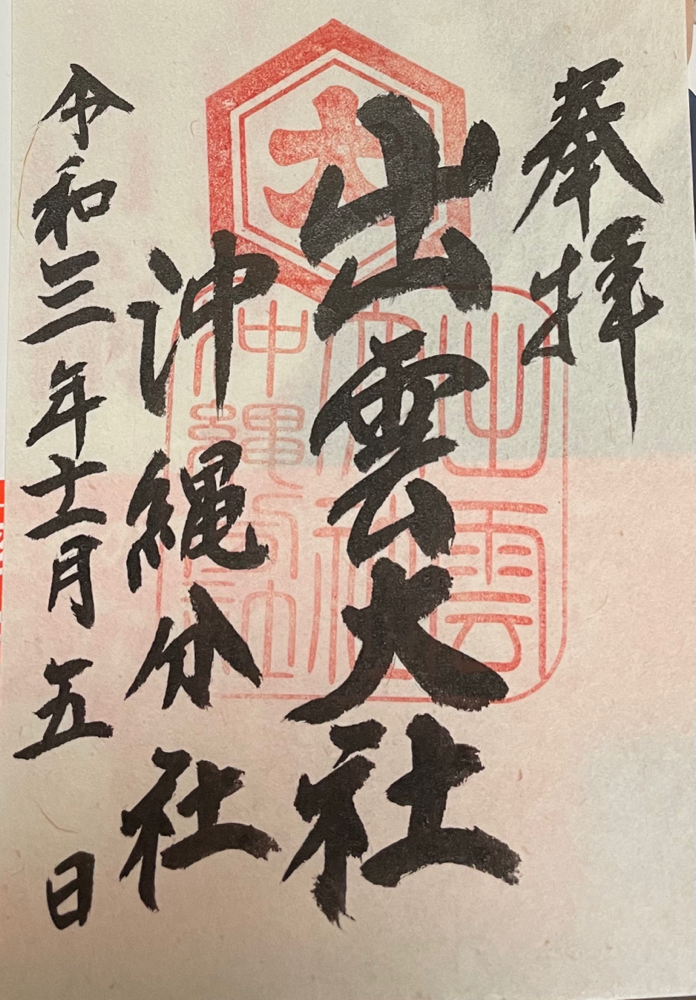 奉拝
出雲大社
沖縄分社
令和三年十一月五日
大
出雲
大社
沖縄分社